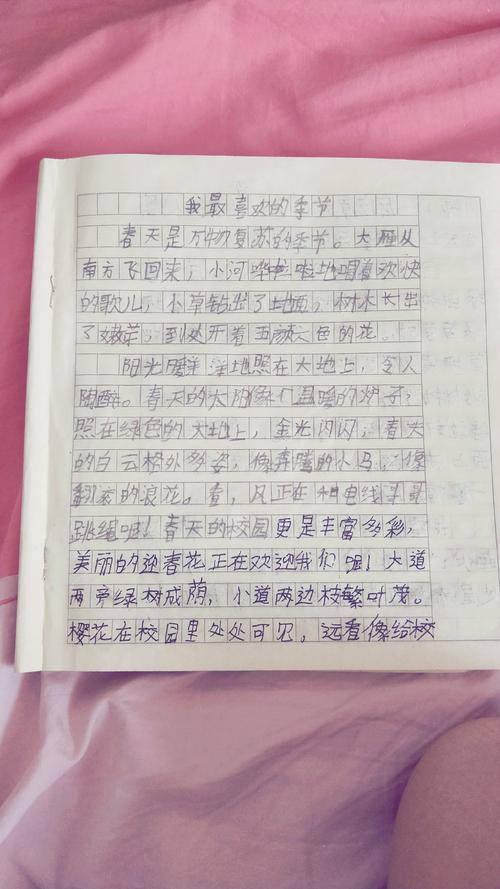 我最喜欢的季节
春天是万物复苏的季节。大雁从
南方飞回来，小河哗啦啦地唱着欢快
的歌儿，小草钻出了地面，树木长出
了嫩芽，到处开着五颜六色的花。
阳光暖洋洋地照在大地上，令人
陶醉。春天的太阳像个温暖的
照在绿色的大地上，金光闪闪，春天
的白云格外多姿，像奔腾的小马，像
翻滚的浪花。看，风正在和电线哥哥
跳绳呢！春天的校园更是丰富多彩，
美丽的迎春花正在欢迎我们呢！大道
两旁绿树成荫，小道两边枝繁叶茂。
樱花在校园里处处可见，远看像给校